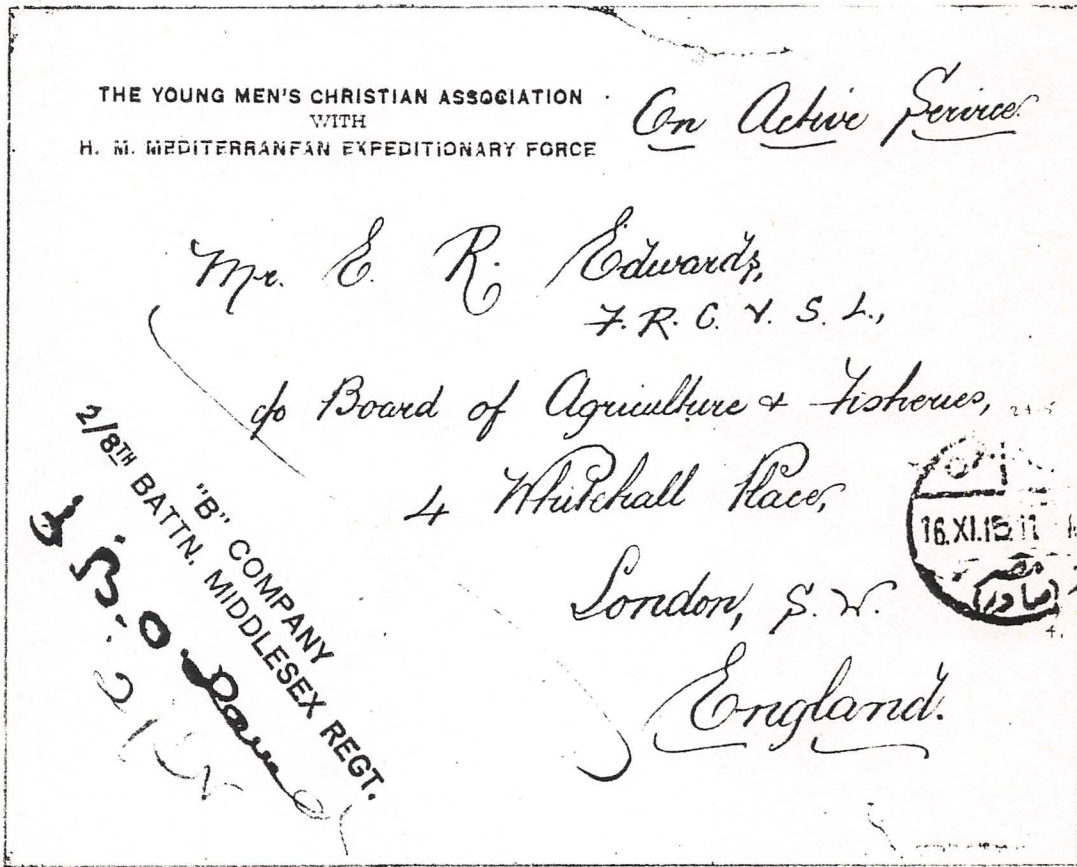 THE YOUNG MEN'S CHRISTIAN ASSOCIATION
WITH
H. M. MEDITERRANEAN EXPEDITIONARY FORCE
On Active Service.
Mr. E. R. Edwards,
F. R. C. V. S. L.,
c/o Board of Agriculture & Fisheries,
4 Whitehall Place,
London, S. W.
England.
"B" COMPANY
2/8TH BATTN. MIDDLESEX REGT.
16.XI.15.11
مصر
(صادر)